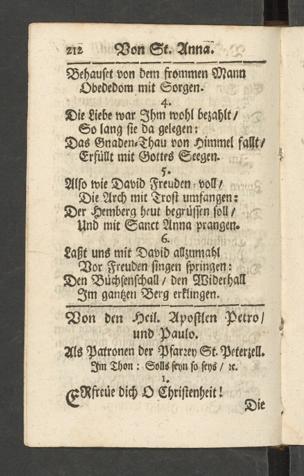 212 Von St. Anna.
Behauset von dem frommen Mann
Obededom mit Sorgen.
4.
Die Liebe war Ihm wohl bezahlt /
So lang sie da gelegen:
Das Gnaden-Thau von Himmel fallt /
Erfüllt mit Gottes Seegen.
5.
Also wie David Freuden-voll /
Die Arch mit Trost umfangen:
Der Hemberg heut begrüssen soll /
Und mit Sanct Anna prangen.
6.
Laßt uns mit David allzumahl
Vor Freuden singen springen:
Den Büchsenschall / den Widerhall
Im gantzen Berg erklingen.
Von den Heil. Apostlen Petro /
und Paulo.
Als Patronen der Pfarrey St. Peterzell.
Im Thon: Solls seyn so seys / ꝛc.
1.
ERfreüe dich O Christenheit!
Die